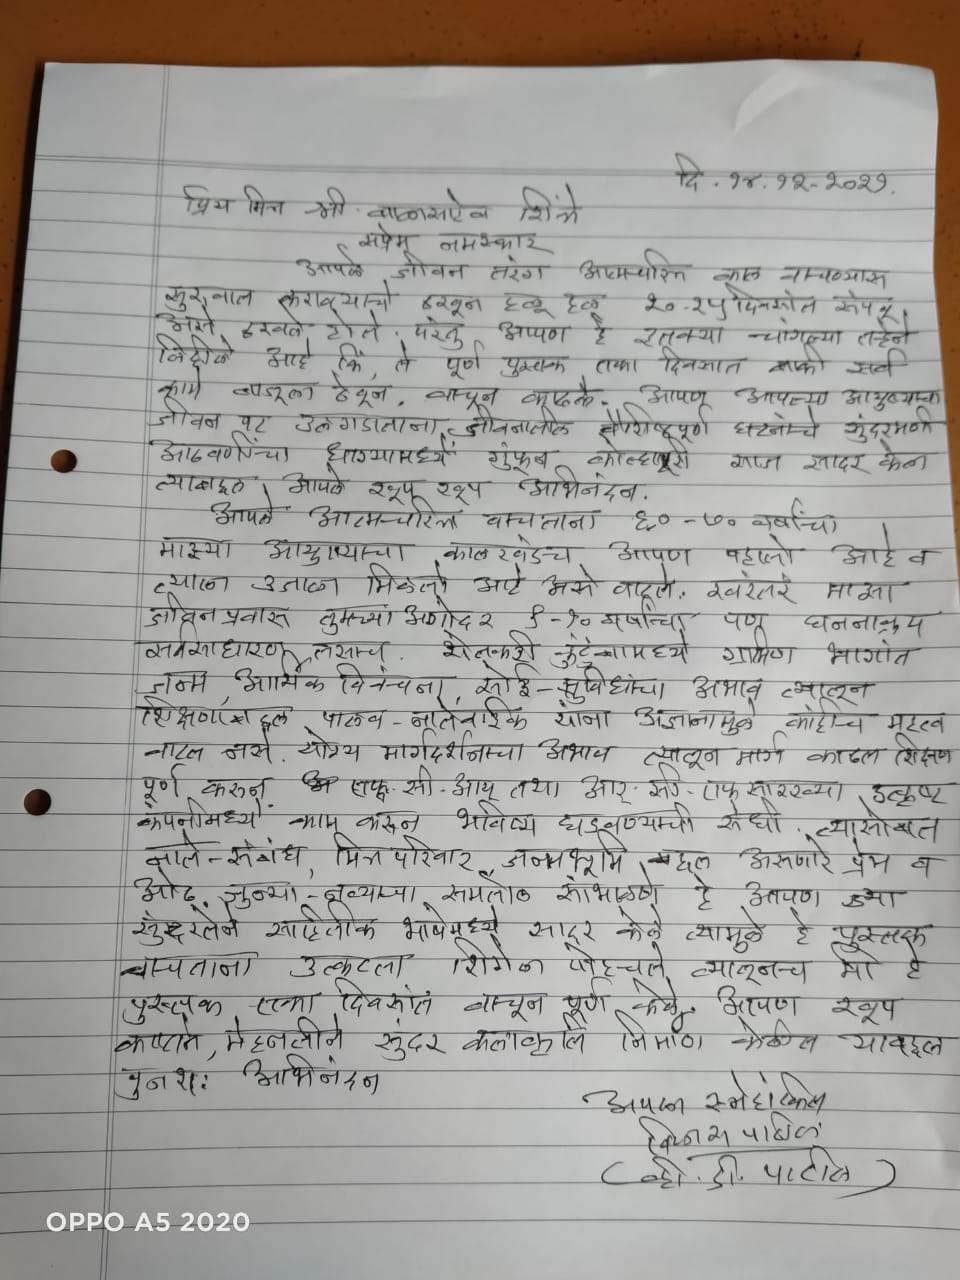 दि. १४.१२-२०२१.
प्रिय मित्र श्री. बाळासाहेब शिंत्रे
सप्रेम नमस्कार
आपले जीवन तरंग आत्मचरित्र काल वाचण्यास
सुरुवात करावयाचे ठरवून हळू हळू २०-२५ दिवसांत संपवू
असे ठरवले होते. परंतु आपण हे इतक्या चांगल्या तऱ्हेने
लिहीले आहे कि, ते पूर्ण पुस्तक एका दिवसात बाकी सर्व
कामे बाजूला ठेवून, वाचून काढले. आपण आपल्या आयुष्याचा
जीवन पट उलगडताना, जीवनातील वैशिष्ट्यपूर्ण घटनांचे सुंदरमणी
आठवणींच्या धाग्यामध्ये गुंफून कोल्हापूरी साज सादर केला
त्याबद्दल आपले खूप खूप अभिनंदन.
आपले आत्मचरित्र वाचताना ६०-७० वर्षांचा
माझ्या आयुष्याचा कालखंडच आपण पहातो आहे व
त्याला उजाळा मिळतो आहे असे वाटले. खरंतरं माझा
जीवन प्रवास तुमच्या अगोदर ९-१० वर्षांचा पण घटनाक्रम
सर्वसाधारण तसाच. शेतकरी कुटुंबामध्ये ग्रामिण भागांत
जन्म, आर्थिक विवंचना, सोई-सुविधांचा अभाव त्यातून
शिक्षणाबद्दल पालक-नातेवाईक यांना अज्ञानामुळे कांहीच महत्व
वाटत नसे. योग्य मार्गदर्शनाचा अभाव त्यातून मार्ग काढत शिक्षण
पूर्ण करून एफ. सी. आय् तथा आर्. सी. एफ सारख्या उत्कृष्ट
कंपनीमध्ये काम करून भविष्य घडवण्याची संधी. त्यासोबत
नाते-संबंध, मित्र परिवार, जन्मभूमि बद्दल असणारे प्रेम व
ओढ, जुन्या-नव्याचा समतोल सांभाळणे हे आपण ज्या
सुंदरतेने साहित्यीक भाषेमध्ये सादर केले त्यामुळे हे पुस्तक
वाचताना उत्कटता शिगेला पोहचते, त्यातूनच मी हे
पुस्तक एका दिवसांत वाचून पूर्ण केले. आपण खूप
कष्टाने, मेहनतीने सुंदर कलाकृति निर्माण केलीत याबद्दल
पुनश्च: अभिनंदन
आपला स्नेहांकित
विलास पाटील
(व्ही. डी. पाटील)
OPPO A5 2020